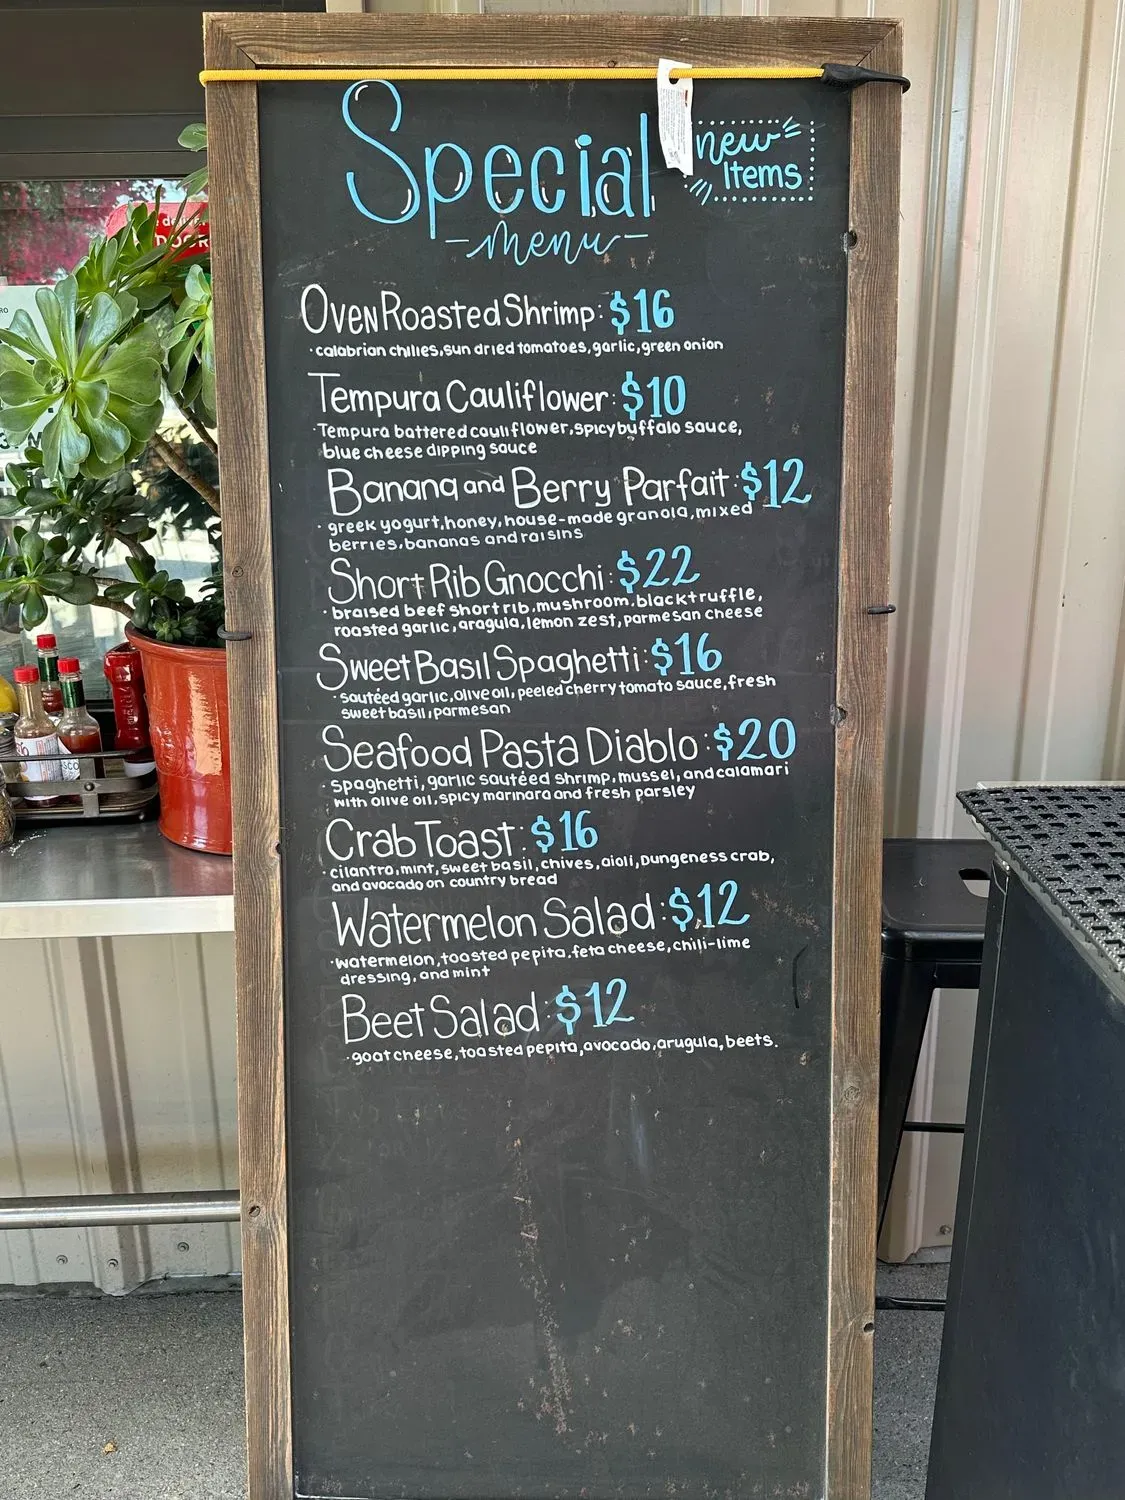 Special
-menu-
new
Items
Oven Roasted Shrimp: $16
·calabrian chilies, sun dried tomatoes, garlic, green onion
Tempura Cauliflower: $10
·Tempura battered cauliflower, spicy buffalo sauce,
blue cheese dipping sauce
Banana and Berry Parfait: $12
·greek yogurt, honey, house-made granola, mixed
berries, bananas and raisins
Short Rib Gnocchi: $22
·braised beef short rib, mushroom, black truffle,
roasted garlic, aragula, lemon zest, parmesan cheese
Sweet Basil Spaghetti: $16
·sautéed garlic, olive oil, peeled cherry tomato sauce, fresh
sweet basil, parmesan
Seafood Pasta Diablo: $20
·spaghetti, garlic sautéed shrimp, mussel, and calamari
with olive oil, spicy marinara and fresh parsley
Crab Toast: $16
·cilantro, mint, sweet basil, chives, aioli, Dungeness crab,
and avocado on country bread
Watermelon Salad: $12
·watermelon, toasted pepita, feta cheese, chili-lime
dressing, and mint
Beet Salad: $12
·goat cheese, toasted pepita, avocado, arugula, beets.